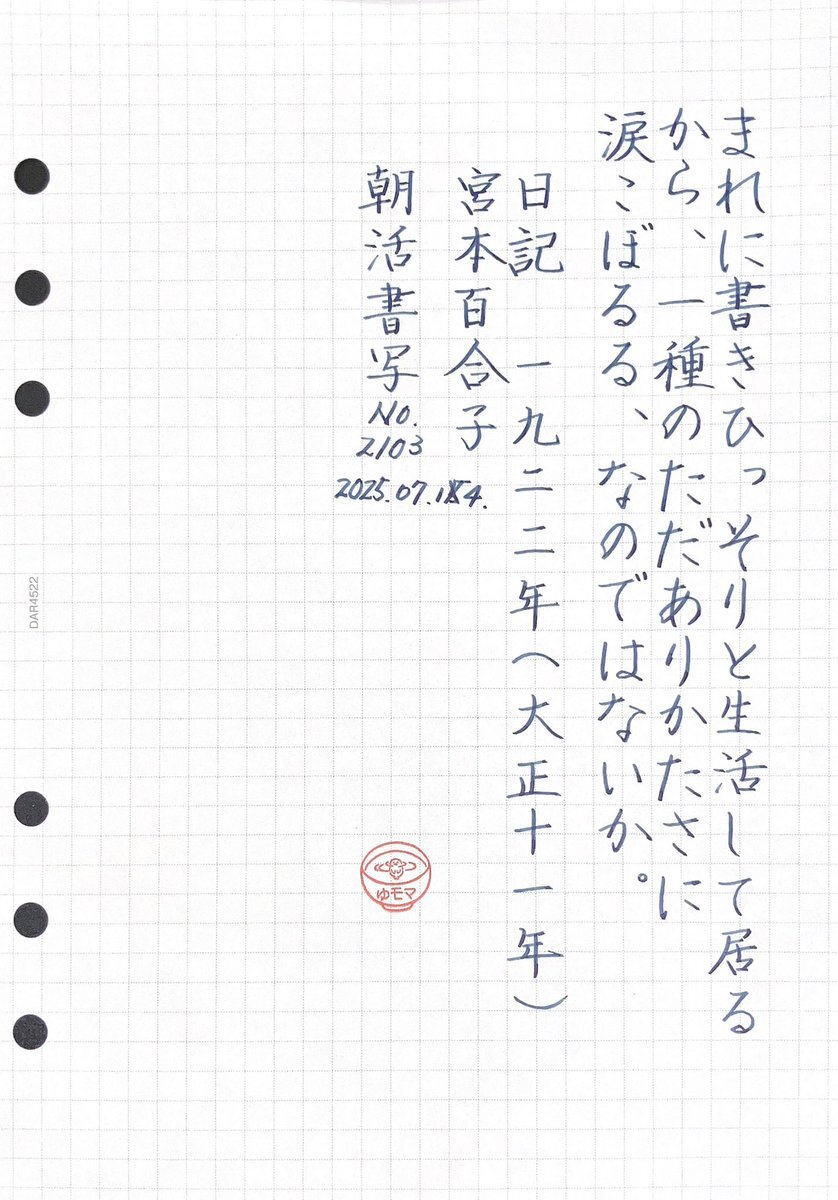 まれに書きひっそりと生活して居る
から、一種のただありかたさに
涙こぼるる、なのではないか。
日記 一九二二年（大正十一年）
宮本百合子
朝活書写
No.
2103
2025.07.14.
ゆモマ
DAR4522